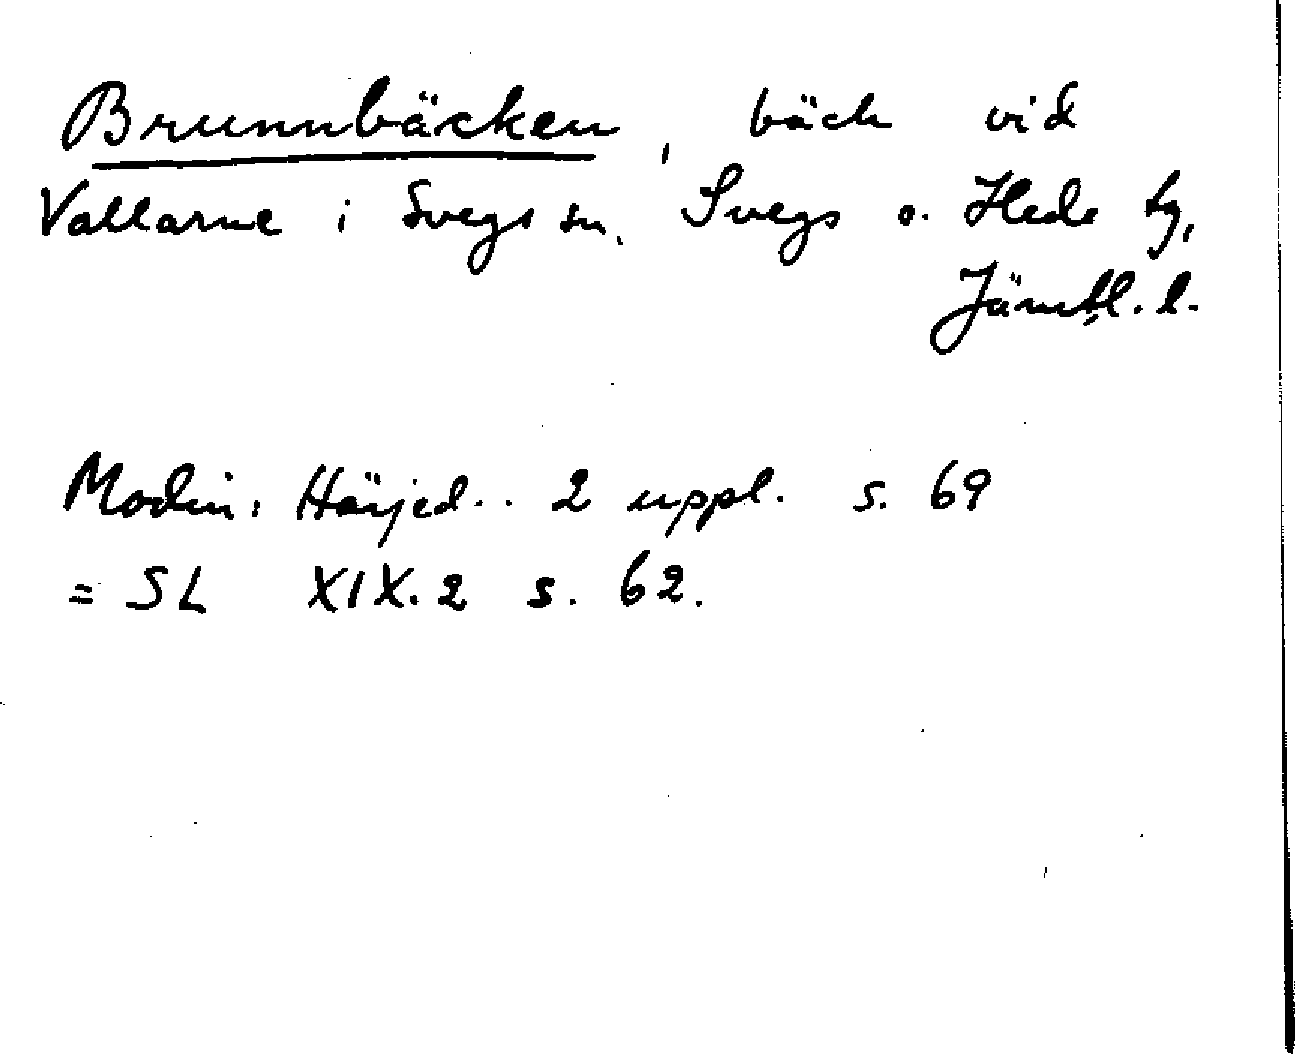 Brunnbäcken, bäck vid
Vallarne i Svegs sn, Svegs o. Hede tg,
Jämtl. l.
Modin: Härjed.. 2 uppl. s. 69
= SL XIX.2 s. 62.